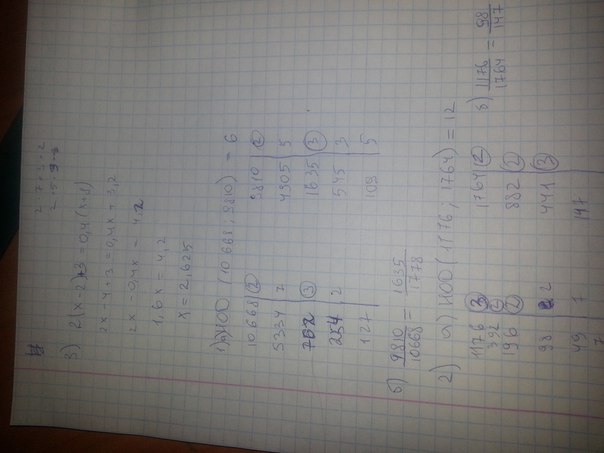 3) 2(x-2)+3=0,4(x+8)
2x-4+3=0,4x+3,2
2x-0,4x=4,2
1,6x=4,2
x=2,625
1) а) НОД (10 668; 9810) = 6
10668 2 9810 2
5334 7 4905 5
762 3 1635 3
254 2 545 3
127 109 5
б) 9810/10668 = 1635/1778
2) а) НОД (1176; 1764) = 12
1176 3 1764 2
392 882 2
96 2 441 3
98 2 147
49 7
7
б) 1176/1764 = 98/147